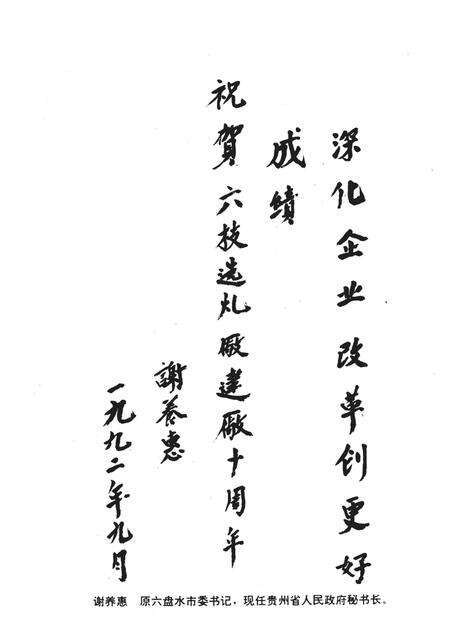 深化企业改革创更好
成績
祝賀六技选廠建廠十周年
謝养惠
一九九二年九月
谢养惠　原六盘水市委书记，现任贵州省人民政府秘书长。